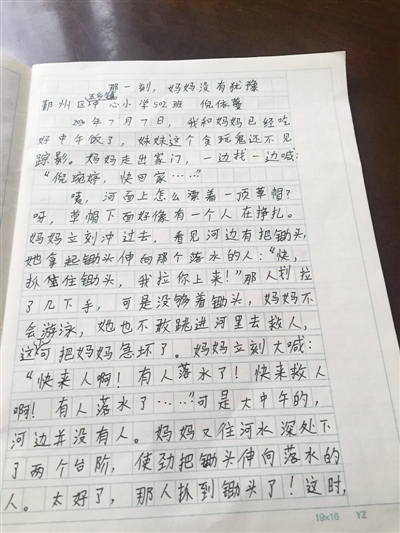 那一刻，妈妈没有犹豫
鄞州区五乡镇中心小学502班 倪依蔓
2020年7月7日，我和妈妈已经吃
好中午饭了，妹妹这个贪玩鬼还不见
踪影。妈妈走出家门，一边找一边喊：
“倪琬婷，快回家……”
咦，河面上怎么漂着一顶草帽？
呀，草帽下面好像有一个人在挣扎。
妈妈立刻冲过去，看见河边有把锄头，
她拿起锄头伸向那个落水的人：“快，
抓住锄头，我拉你上来！”那人划拉
了几下手，可是没够着锄头，妈妈不
会游泳，她也不敢跳进河里去救人，
这下可把妈妈急坏了。妈妈立刻大喊：
“快来人啊！有人落水了！快来救人
啊！有人落水了……”可是大中午的，
河边并没有人。妈妈又往河水深处下
了两个台阶，使劲把锄头伸向落水的
人。太好了，那人抓到锄头了！这时，
19x16 YZ